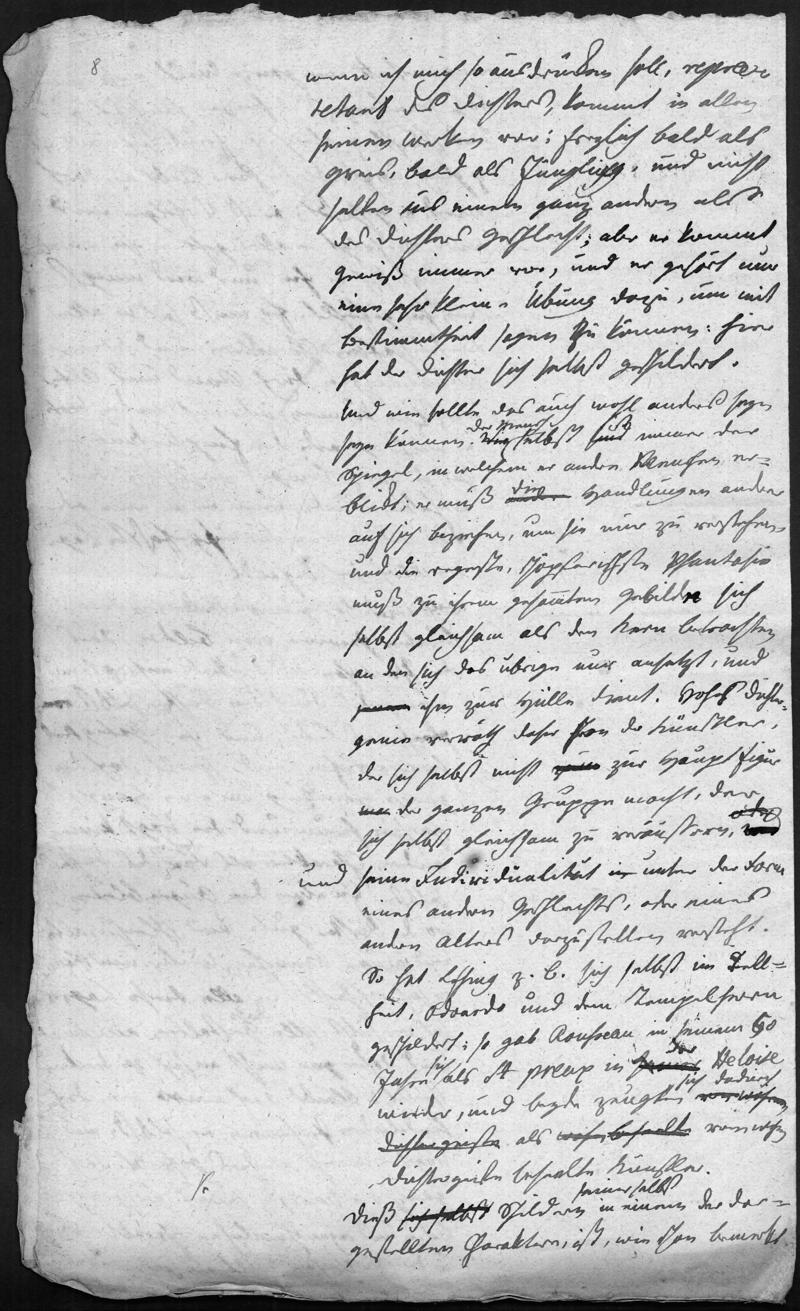 8
wenn ich mich so ausdrücken soll, repräsen
tetant des Dichters, kommt in allen
seinen Werken vor; freylich bald als
Greis, bald als Jüngling, und nicht
selten aus einem ganz andern als
des Dichters Geschlecht; aber er kommt
gewiß immer vor, und es gehört nur
eine sehr kleine Übung dazu, um mit
Bestimmtheit sagen zu können: hier
hat der Dichter sich selbst geschildert.
Und wie sollte das auch wohl anders seyn
seyn können. der Mensch selbst ist immer der
Spiegel, in welchem er andre Menschen er-
blickt; er muß die Handlungen andrer
auf sich beziehen, um sie nur zu verstehen,
und die regeste, schöpferischste Phantasie
muß zu ihren gesammten Gebilden sich
selbst gleichsam als den Kern betrachten
an den sich das übrige nur ansetzt, und
ihm zur Hülle dient. Hohes Dichter-
genie verräth daher schon der Künstler,
der sich selbst nicht zur Hauptfigur
der ganzen Gruppe macht, der
sich selbst gleichsam zu veräussern, oder
und seine Individualität in unter der Form
eines andern Geschlechts, oder eines
andern Alters darzustellen versteht.
So hat Lessing z. B. sich selbst im Tell-
heit, Odoardo und dem Tempelherrn
geschildert; so gab Rousseau in seinem 50
Jahre sich als St preux in der Heloise
wieder, und beyde zeugten sich dadurch
Dichtergeiste als vom wahren
Dichtergeiste beseelte Künstler.
Dieß sich selbst Schildern seiner selbst in einem der dar-
gestellten Charaktere, ist, wie schon bemerkt